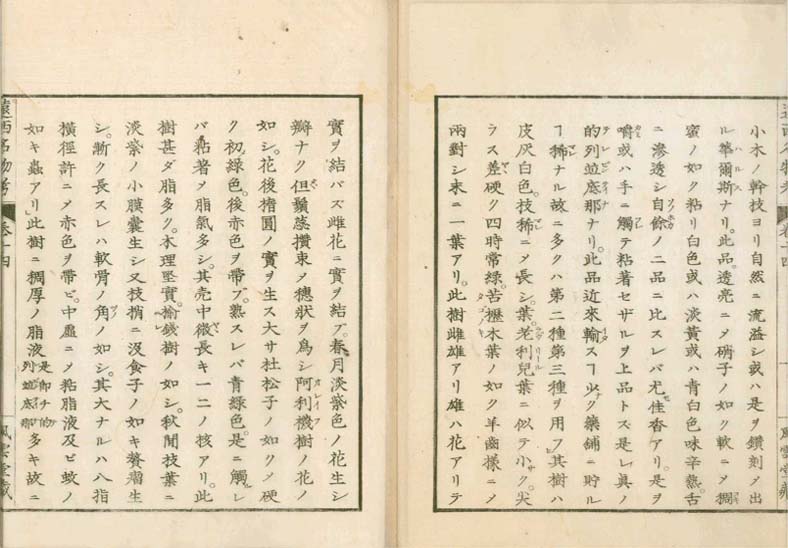 小木ノ幹技ヨリ自然ニ流溢シ或ハ是ヲ鑽刻〆出
ル華爾斯ナリ。此品透亮ニ〆硝子ノ如ク軟ニ〆稠
蜜ノ如ク粘リ白色或ハ淡黄或ハ青白色味辛熱。舌
ニ滲透シ自餘ノ二品ニ比スレバ尤佳香アリ。是ヲ
嚼或ハ手ニ觸テ粘著セザルヲ上品トス是レ眞ノ
的列並底那ナリ。此品近來輸スヿ少ク藥鋪ニ貯ル
ヿ稀ナル故ニ多クハ第二種第三種ヲ用フ其樹ハ
皮灰白色。技稀ニ〆長シ。葉。老利兒葉ニ似テ小ク。尖
ラス差硬ク四時常緑。苦櫪木葉ノ如ク羊齒樣ニ〆
兩對シ末ニ一葉アリ。此樹雌雄アリ雄ハ花アリテ
實ヲ結バズ雌花ニ實ヲ結ブ。春月淡紫色ノ花生シ
瓣ナク但鬚蕊攢束〆穗狀ヲ爲シ阿利機樹ノ花ノ
如シ。花後橢圓ノ實ヲ生ス大サ杜松子ノ如ク〆硬
ク初緑色。後赤色ヲ帶ブ。熟スレバ青緑色。是ニ觸レ
バ粘著〆脂氣多シ。其壳中微長キ一二ノ核アリ。此
樹甚ダ脂多ク。木理堅實。榆錢樹ノ如シ。秋間技葉ニ
淡紫ノ小膜囊生シ又技梢ニ沒食子ノ如キ贅瘤生
シ。漸ク長スレハ軟骨ノ角ノ如シ。其大ナルハ八指
橫徑許ニ〆赤色ヲ帶ビ。中虛ニ〆粘脂液及ビ蚊ノ
如キ蟲アリ」此樹ニ稠厚ノ脂液是卽チ的列並底那多キ故ニ
遠西名物考
卷十四
風雲堂藏